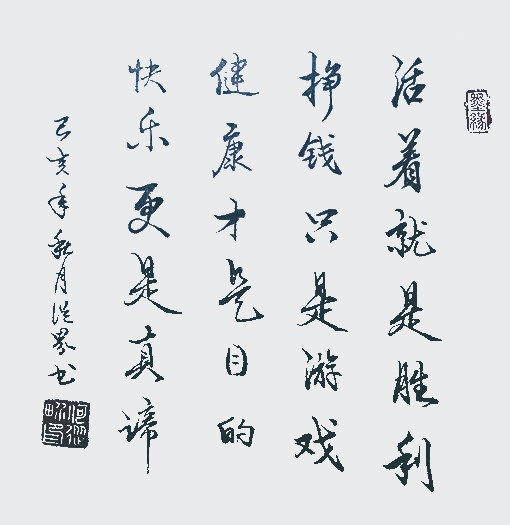 活着就是胜利
挣钱只是游戏
健康才是目的
快乐更是真谛
己亥年秋月 书